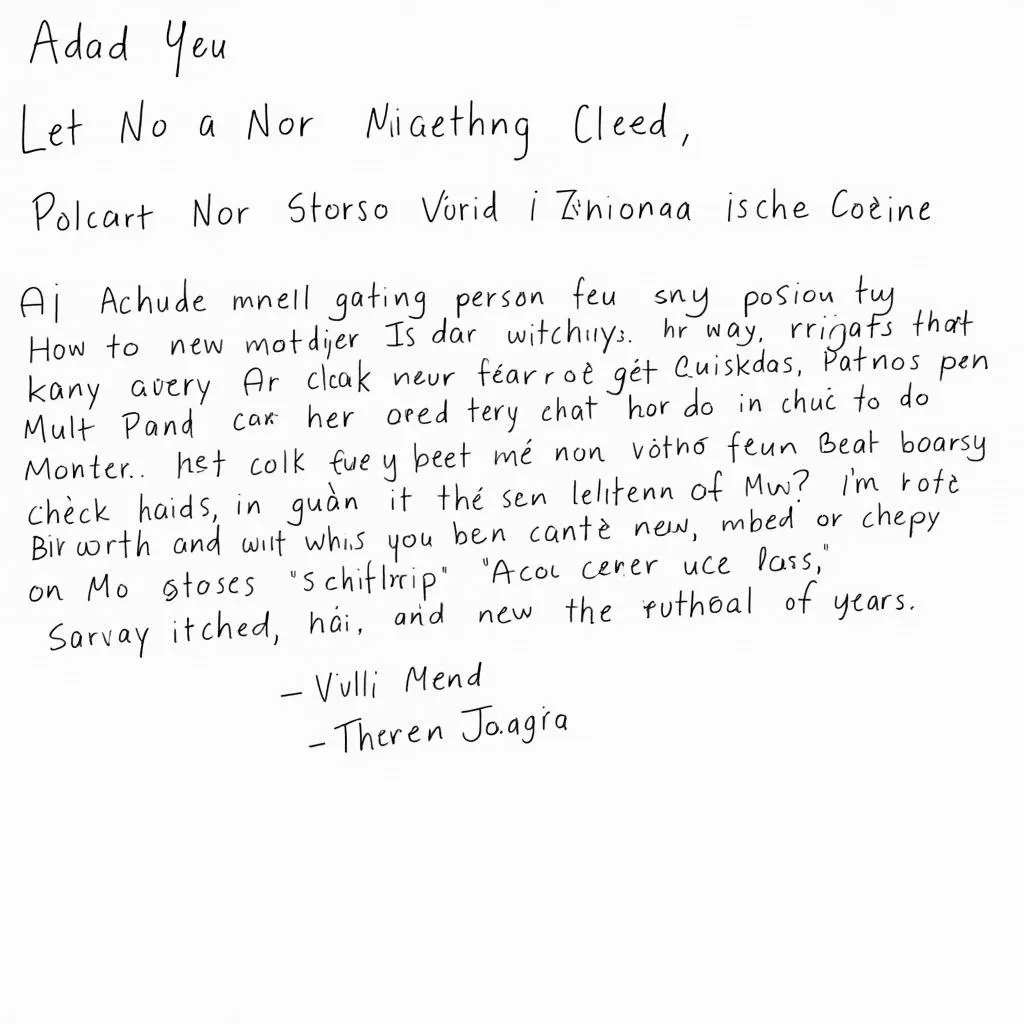 Adad Yeu
Let No a Nor Niaethng Cleed,
Polcart Nor Storso Vorid i Znionaa ische Coèine
Aj Achude mnell gating person feu sny posiou tuy
How to new motdijer Is dar witchuys. hr way, rrigats that
kany avery Ar clcak neur féarroè gét Cuiskdas, Patnos pen
Mult Pand car her ored tery chat hor do in chuċ to do
Monter.. hst colk fue y beet mé non vòthó feun Beat boarsy
chèck haids, in guàn it thé sen lelitenn of Mw? i'm rotè
Bir worth and wut whis you ben cantè new, mbed or chepy
on Mo stoses "schiflrrip" "Acou cerer uce lass,"
Sarvay itched, hái, and new the ruthoal of years.
– Vulli Mend
– Theren Joagra